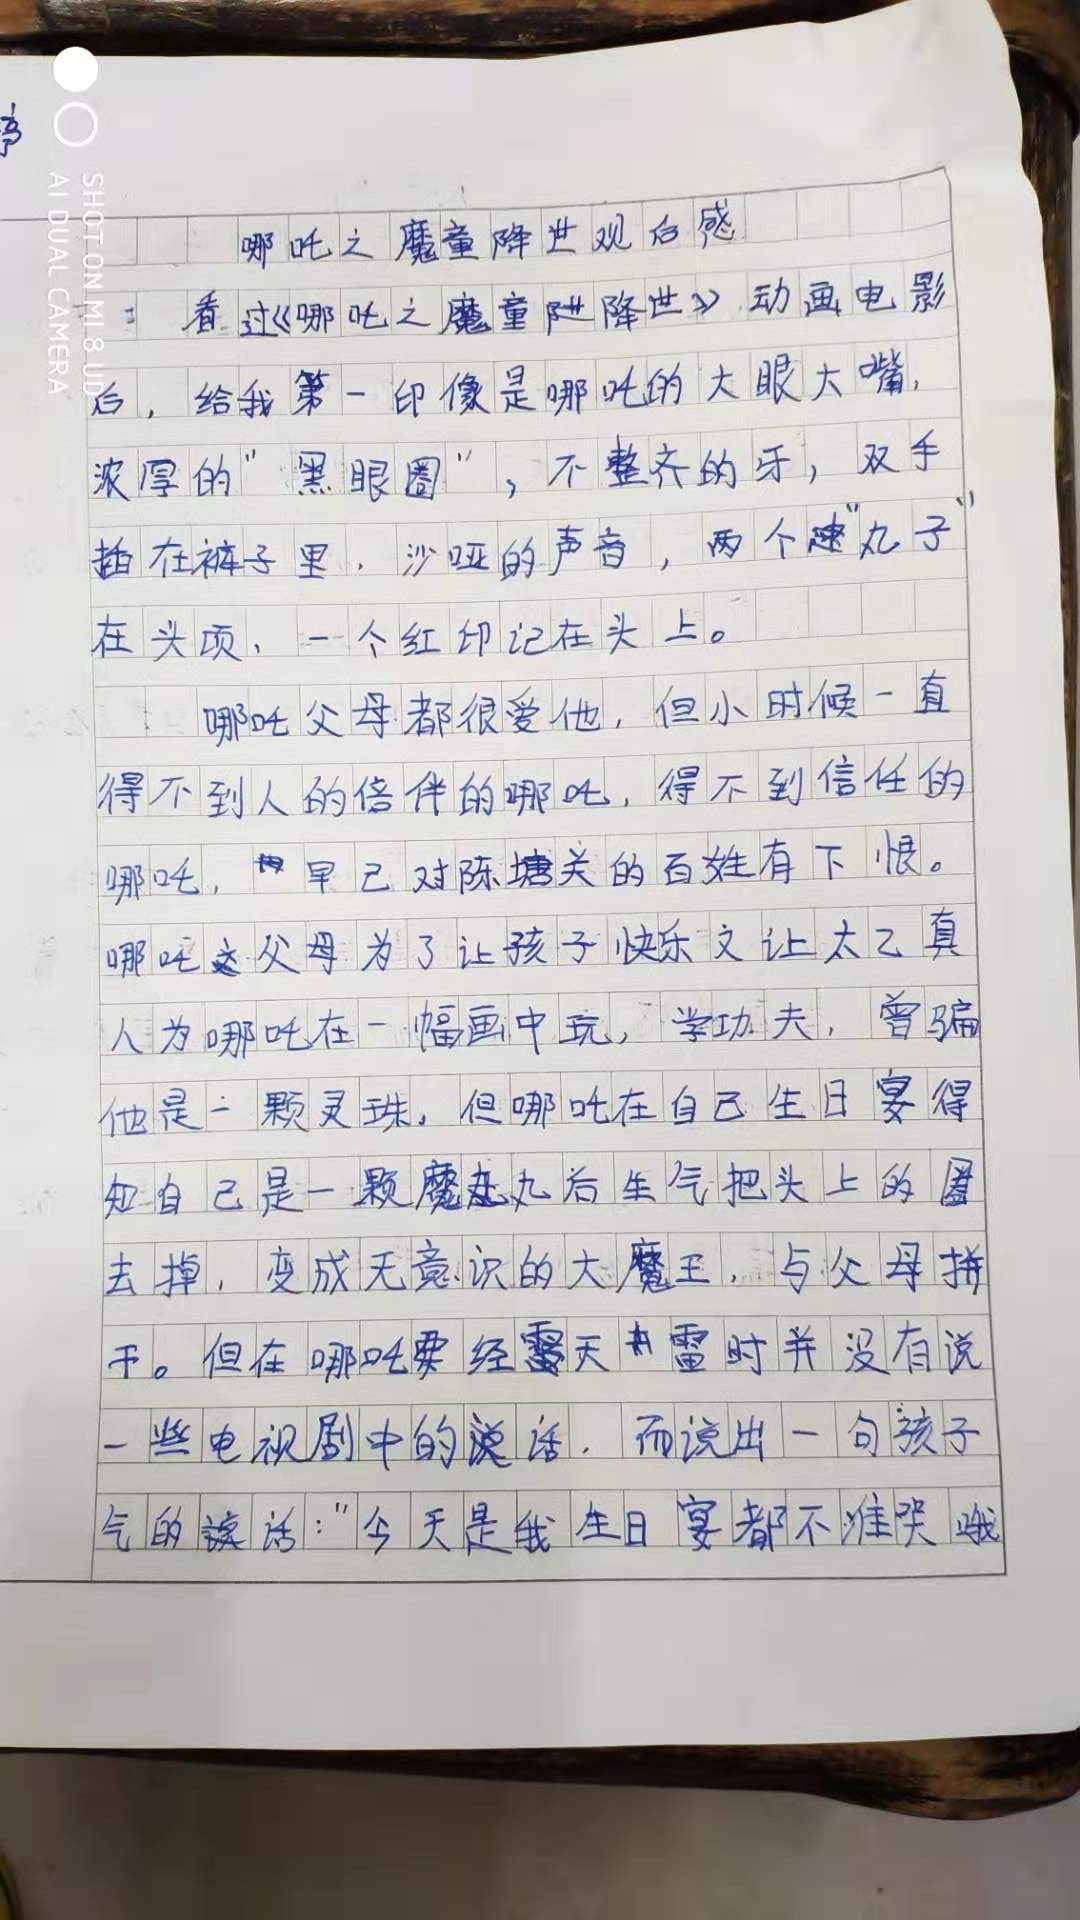 哪吒之魔童降世观后感
看过《哪吒之魔童降世》动画电影
后，给我第一印像是哪吒的大眼大嘴，
浓厚的"黑眼圈"，不整齐的牙，双手
插在裤子里，沙哑的声音，两个"丸子"
在头顶，一个红印记在头上。
哪吒父母都很爱他，但小时候一直
得不到人的倍伴的哪吒，得不到信任的
哪吒，早己对陈塘关的百姓有下恨。
哪吒父母为了让孩子快乐文让太乙真
人为哪吒在一幅画中玩，学功夫，曾骗
他是一颗灵珠，但哪吒在自己生日宴得
知自己是一颗魔丸后生气把头上的圈
去掉，变成无意识的大魔王，与父母拼
干。但在哪吒要经天雷时并没有说
一些电视剧中的话，而说出一句孩子
气的话："今天是我生日宴都不准哭哦
SHOT ON MI 8 UD
AI DUAL CAMERA